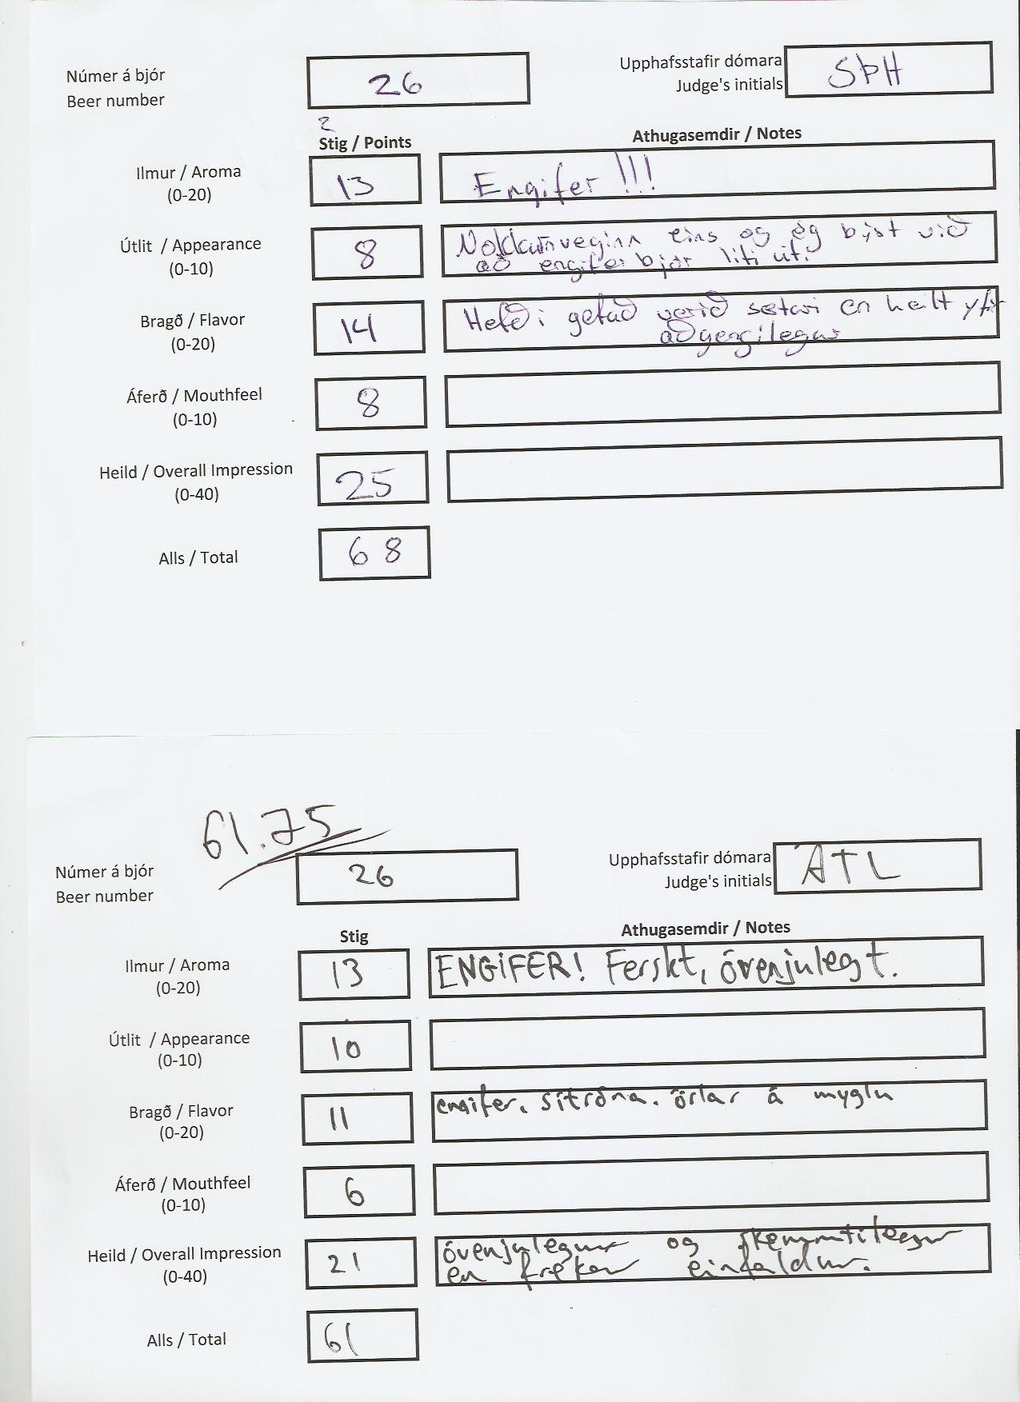 Númer á bjór
Beer number
26
Upphafsstafir dómara
Judge's initials
SÞH
2
Stig / Points
Athugasemdir / Notes
Ilmur / Aroma
(0-20)
13
Engifer !!!
Útlit / Appearance
(0-10)
8
Nokkurnveginn eins og ég býst við
að engiferbjór líti út.
Bragð / Flavor
(0-20)
14
Hefði getað verið sætari en heilt yfir
aðgengilegur
Áferð / Mouthfeel
(0-10)
8
Heild / Overall Impression
(0-40)
25
Alls / Total
68
61.75
Númer á bjór
Beer number
26
Upphafsstafir dómara
Judge's initials
ATL
Stig
Athugasemdir / Notes
Ilmur / Aroma
(0-20)
13
ENGIFER! Ferskt, óvenjulegt.
Útlit / Appearance
(0-10)
10
Bragð / Flavor
(0-20)
11
engifer. sítróna. örlar á myglu
Áferð / Mouthfeel
(0-10)
6
Heild / Overall Impression
(0-40)
21
óvenjulegur og skemmtilegur
en frekar einfaldur.
Alls / Total
61